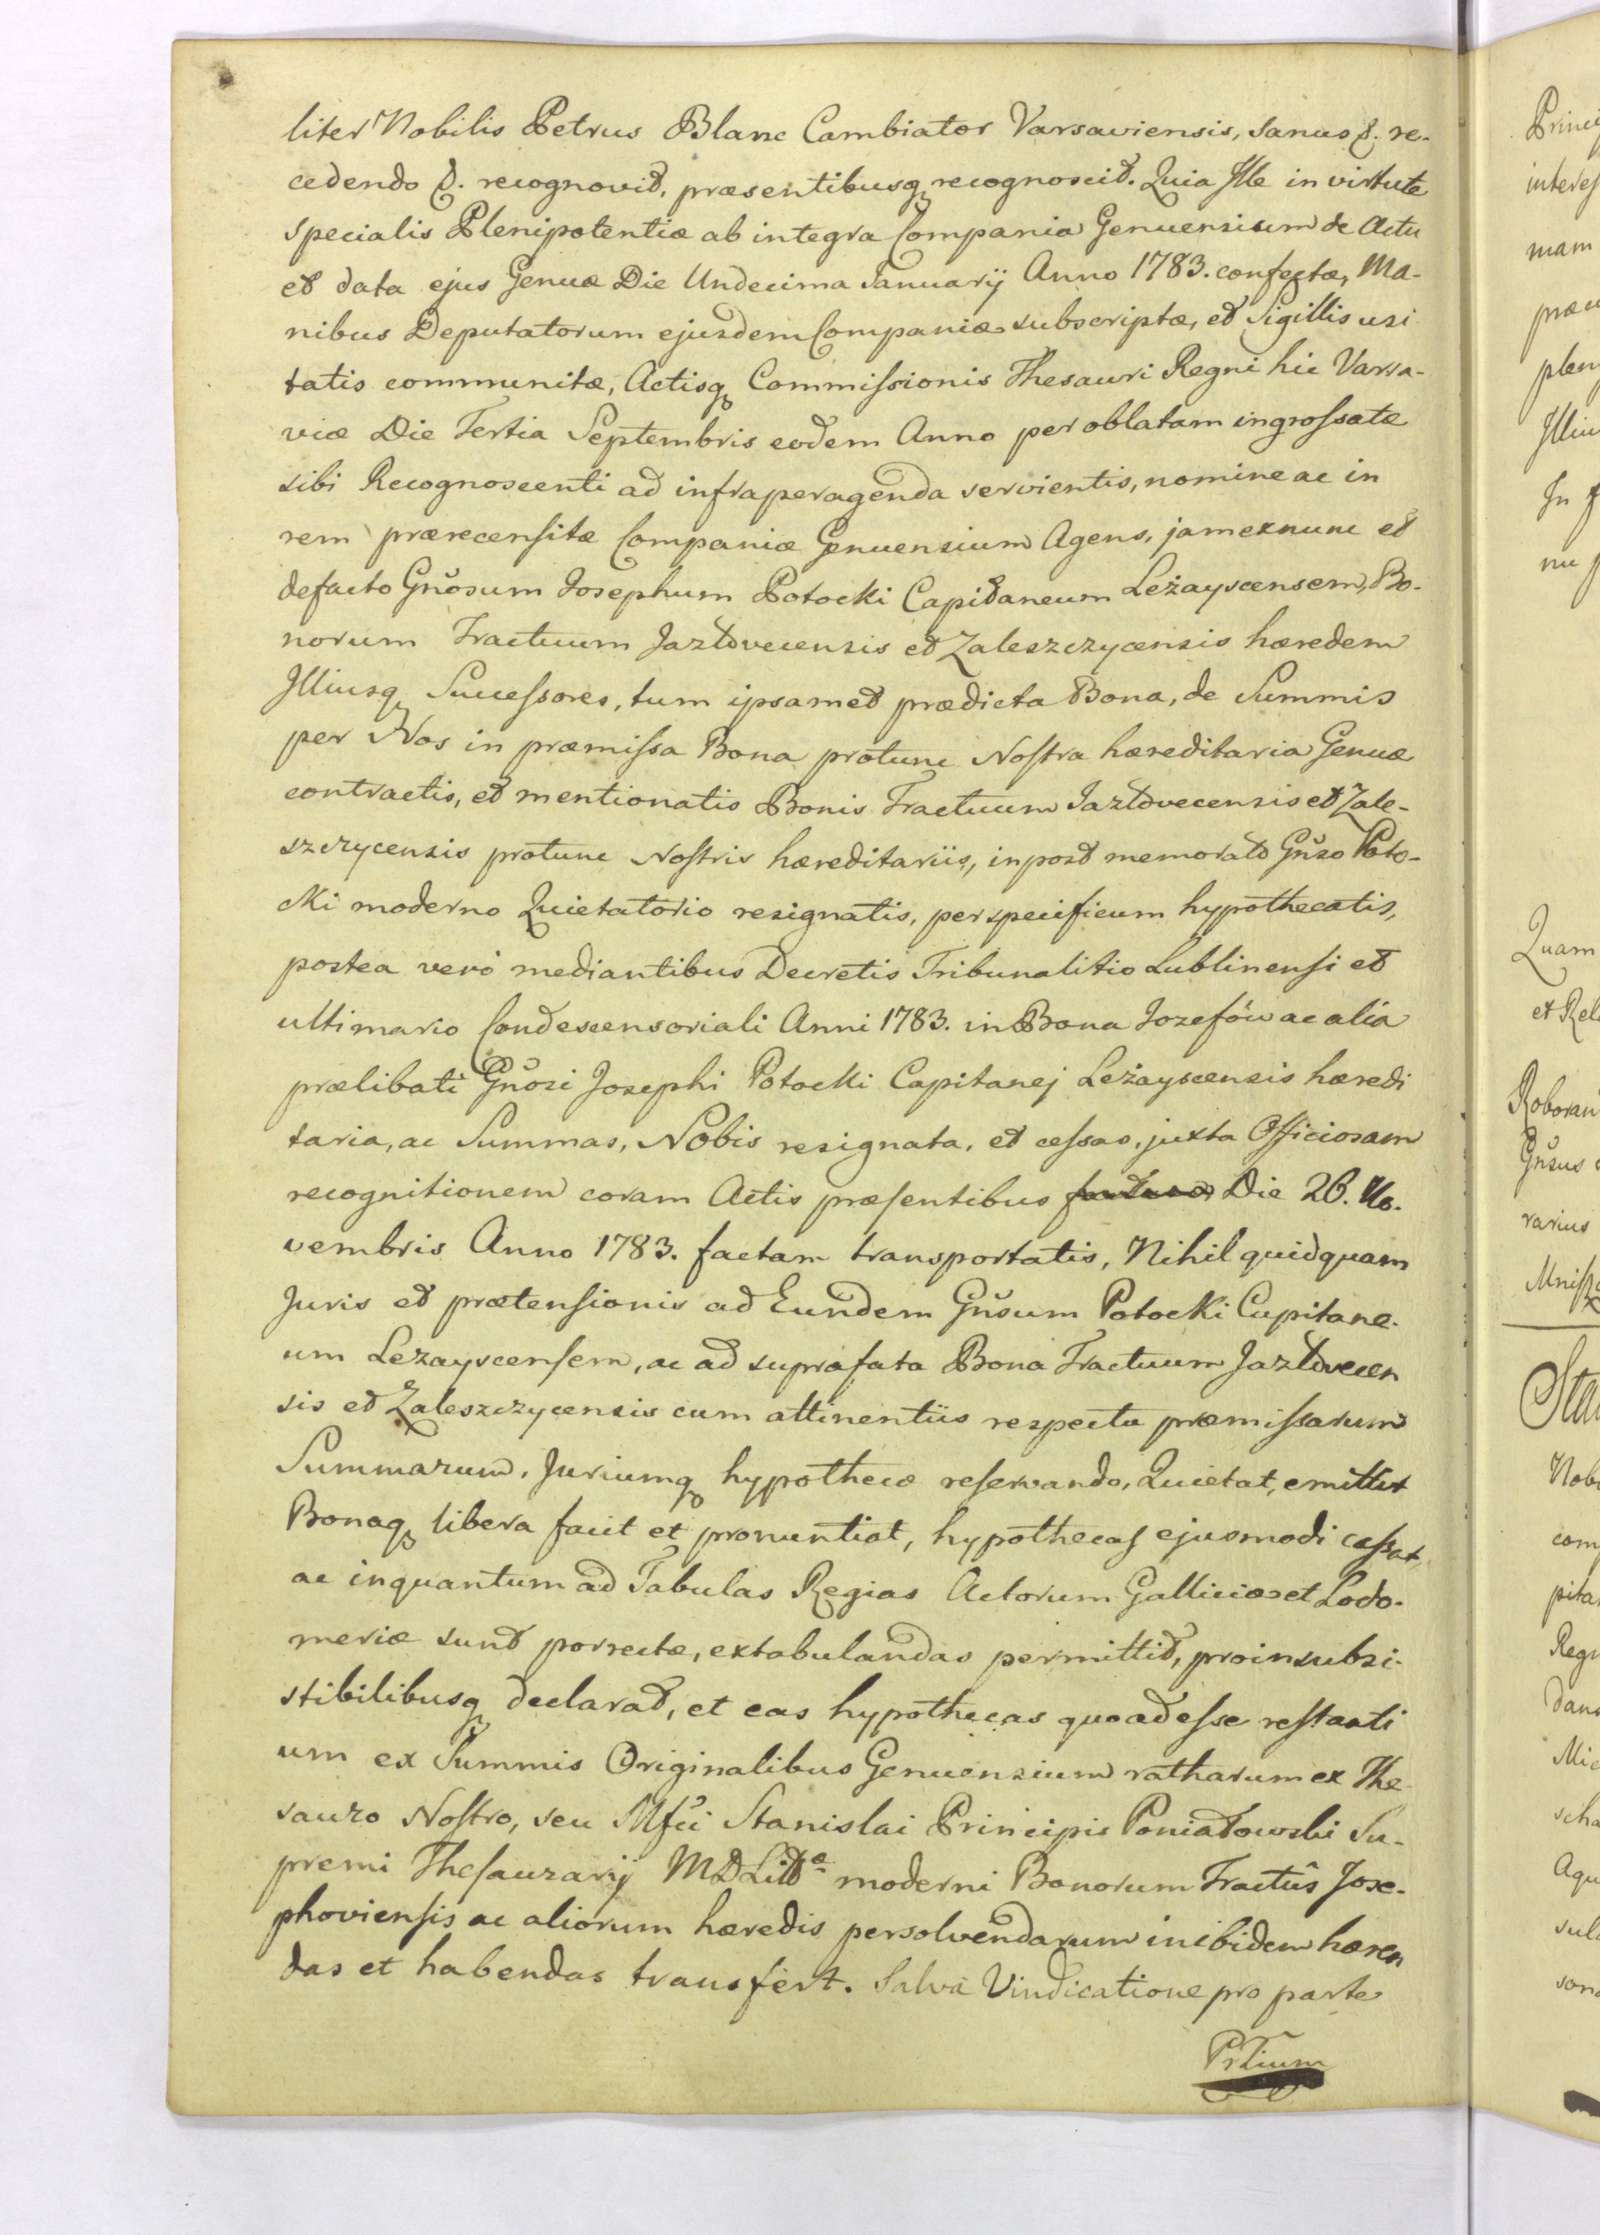 liter Nobilis Petrus Blanc Cambiator Varsaviensis, sanus &. re-
cedendo &. recognovit, præsentibusq recognoscit. Quia Ille in virtute
specialis Plenipotentiæ ab integra Compania Genuensium de Actu
et data ejus Genuæ Die Undecima Januarij Anno 1783. confectæ, Ma-
nibus Deputatorum ejusdem Companiæ subscriptæ, et Sigillis usi
tatis communitæ, Actisq Commissionis Thesauri Regni hic Varsa-
viæ Die Tertia Septembris eodem Anno per oblatam ingrossatæ
sibi Recognoscenti ad infra peragenda servientis, nomine ac in
rem prærecensitæ Companiæ Genuensium Agens, jam ex nunc et
defacto Gnosum Josephum Potocki Capitaneum Leżayscensem, Bo-
norum Tractuum Jazłovecensis et Zaleszczycensis hæredem
Illiusq Successores, tum ipsamet prædicta Bona, de Summis
per Nos in præmissa Bona protunc Nostra hæreditaria Genuæ
contractis, et mentionatis Bonis Tractuum Jazłovecensis et Zale-
szczycensis protunc Nostris hæreditariis, in post memorato Gnso Poto-
cki moderno Quietatorio resignatis, per specificum hypothecatis,
postea verò mediantibus Decretis Tribunalitio Lublinensi et
ultimario Condescensoriali Anni 1783. in Bona Jozefów ac alia
prælibati Gnosi Josephi Potocki Capitanej Leżayscensis hæredi
taria, ac Summas, Nobis resignata, et cessas, juxta Officiosam
recognitionem coram Actis præsentibus Die 26. No-
vembris Anno 1783. factam transportatis, Nihil quidquam
Juris et prætensionis ad Eundem Gnsum Potocki Capitane-
um Leżayscensem, ac ad suprafata Bona Tractuum Jazłovecen
sis et Zaleszczycensis cum attinentiis respectu præmissarum
Summarum, Juriumq hypothecæ reservando, Quietat, emittit
Bonaq libera facit et pronuntiat, hypothecas ejusmodi cassat,
ac inquantum ad Tabulas Regias Actorum Galliciæ et Lodo-
meriæ sunt porrectæ, extabulandas permittit, pro insubsi-
stibilibusq declarat, et eas hypothecas quoad esse restanti
um ex Summis Originalibus Genuensium ratharum ex The-
sauro Nostro, seu Mfci Stanislai Principis Poniatowski Su-
premi Thesaurarij MDLitt moderni Bonorum Tractûs Jose-
phoviensis ac aliorum hæredis persolvendarum inibidem hæren
das et habendas transfert. Salvâ Vindicatione pro parte
Prtium